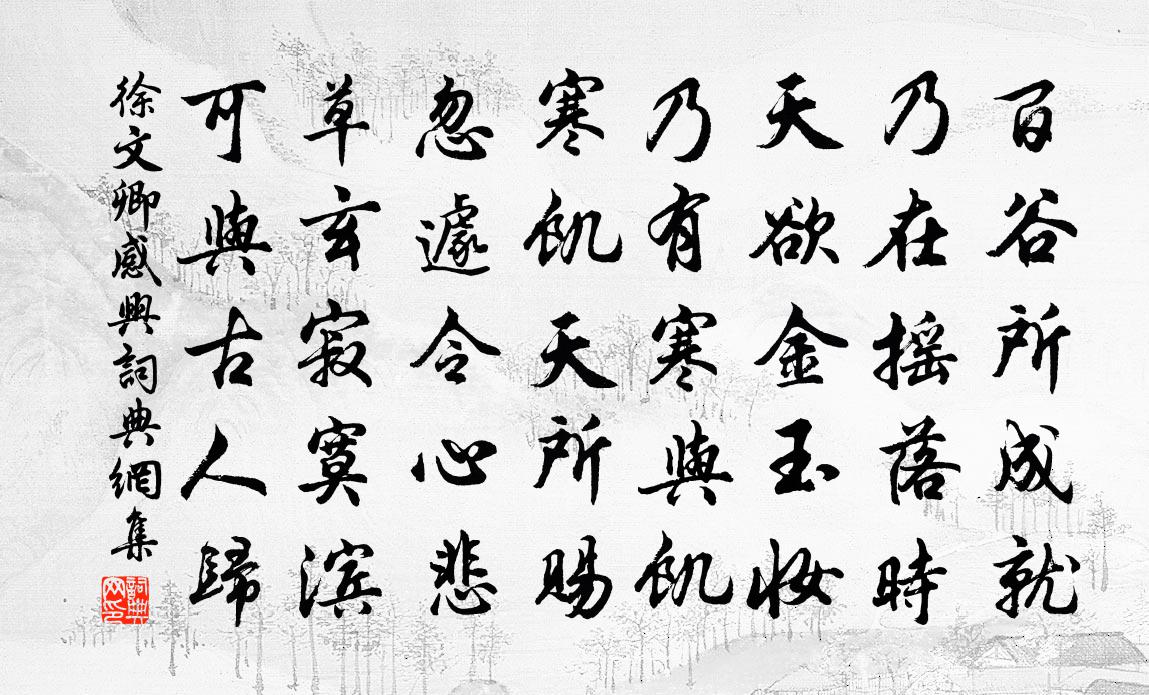 百谷所成就
乃在摇落時
天欲金玉妝
乃有寒與飢
寒飢天所賜
忽遽令心悲
草玄寂寞滨
可與古人歸
徐文卿感興詞典網集
詞典